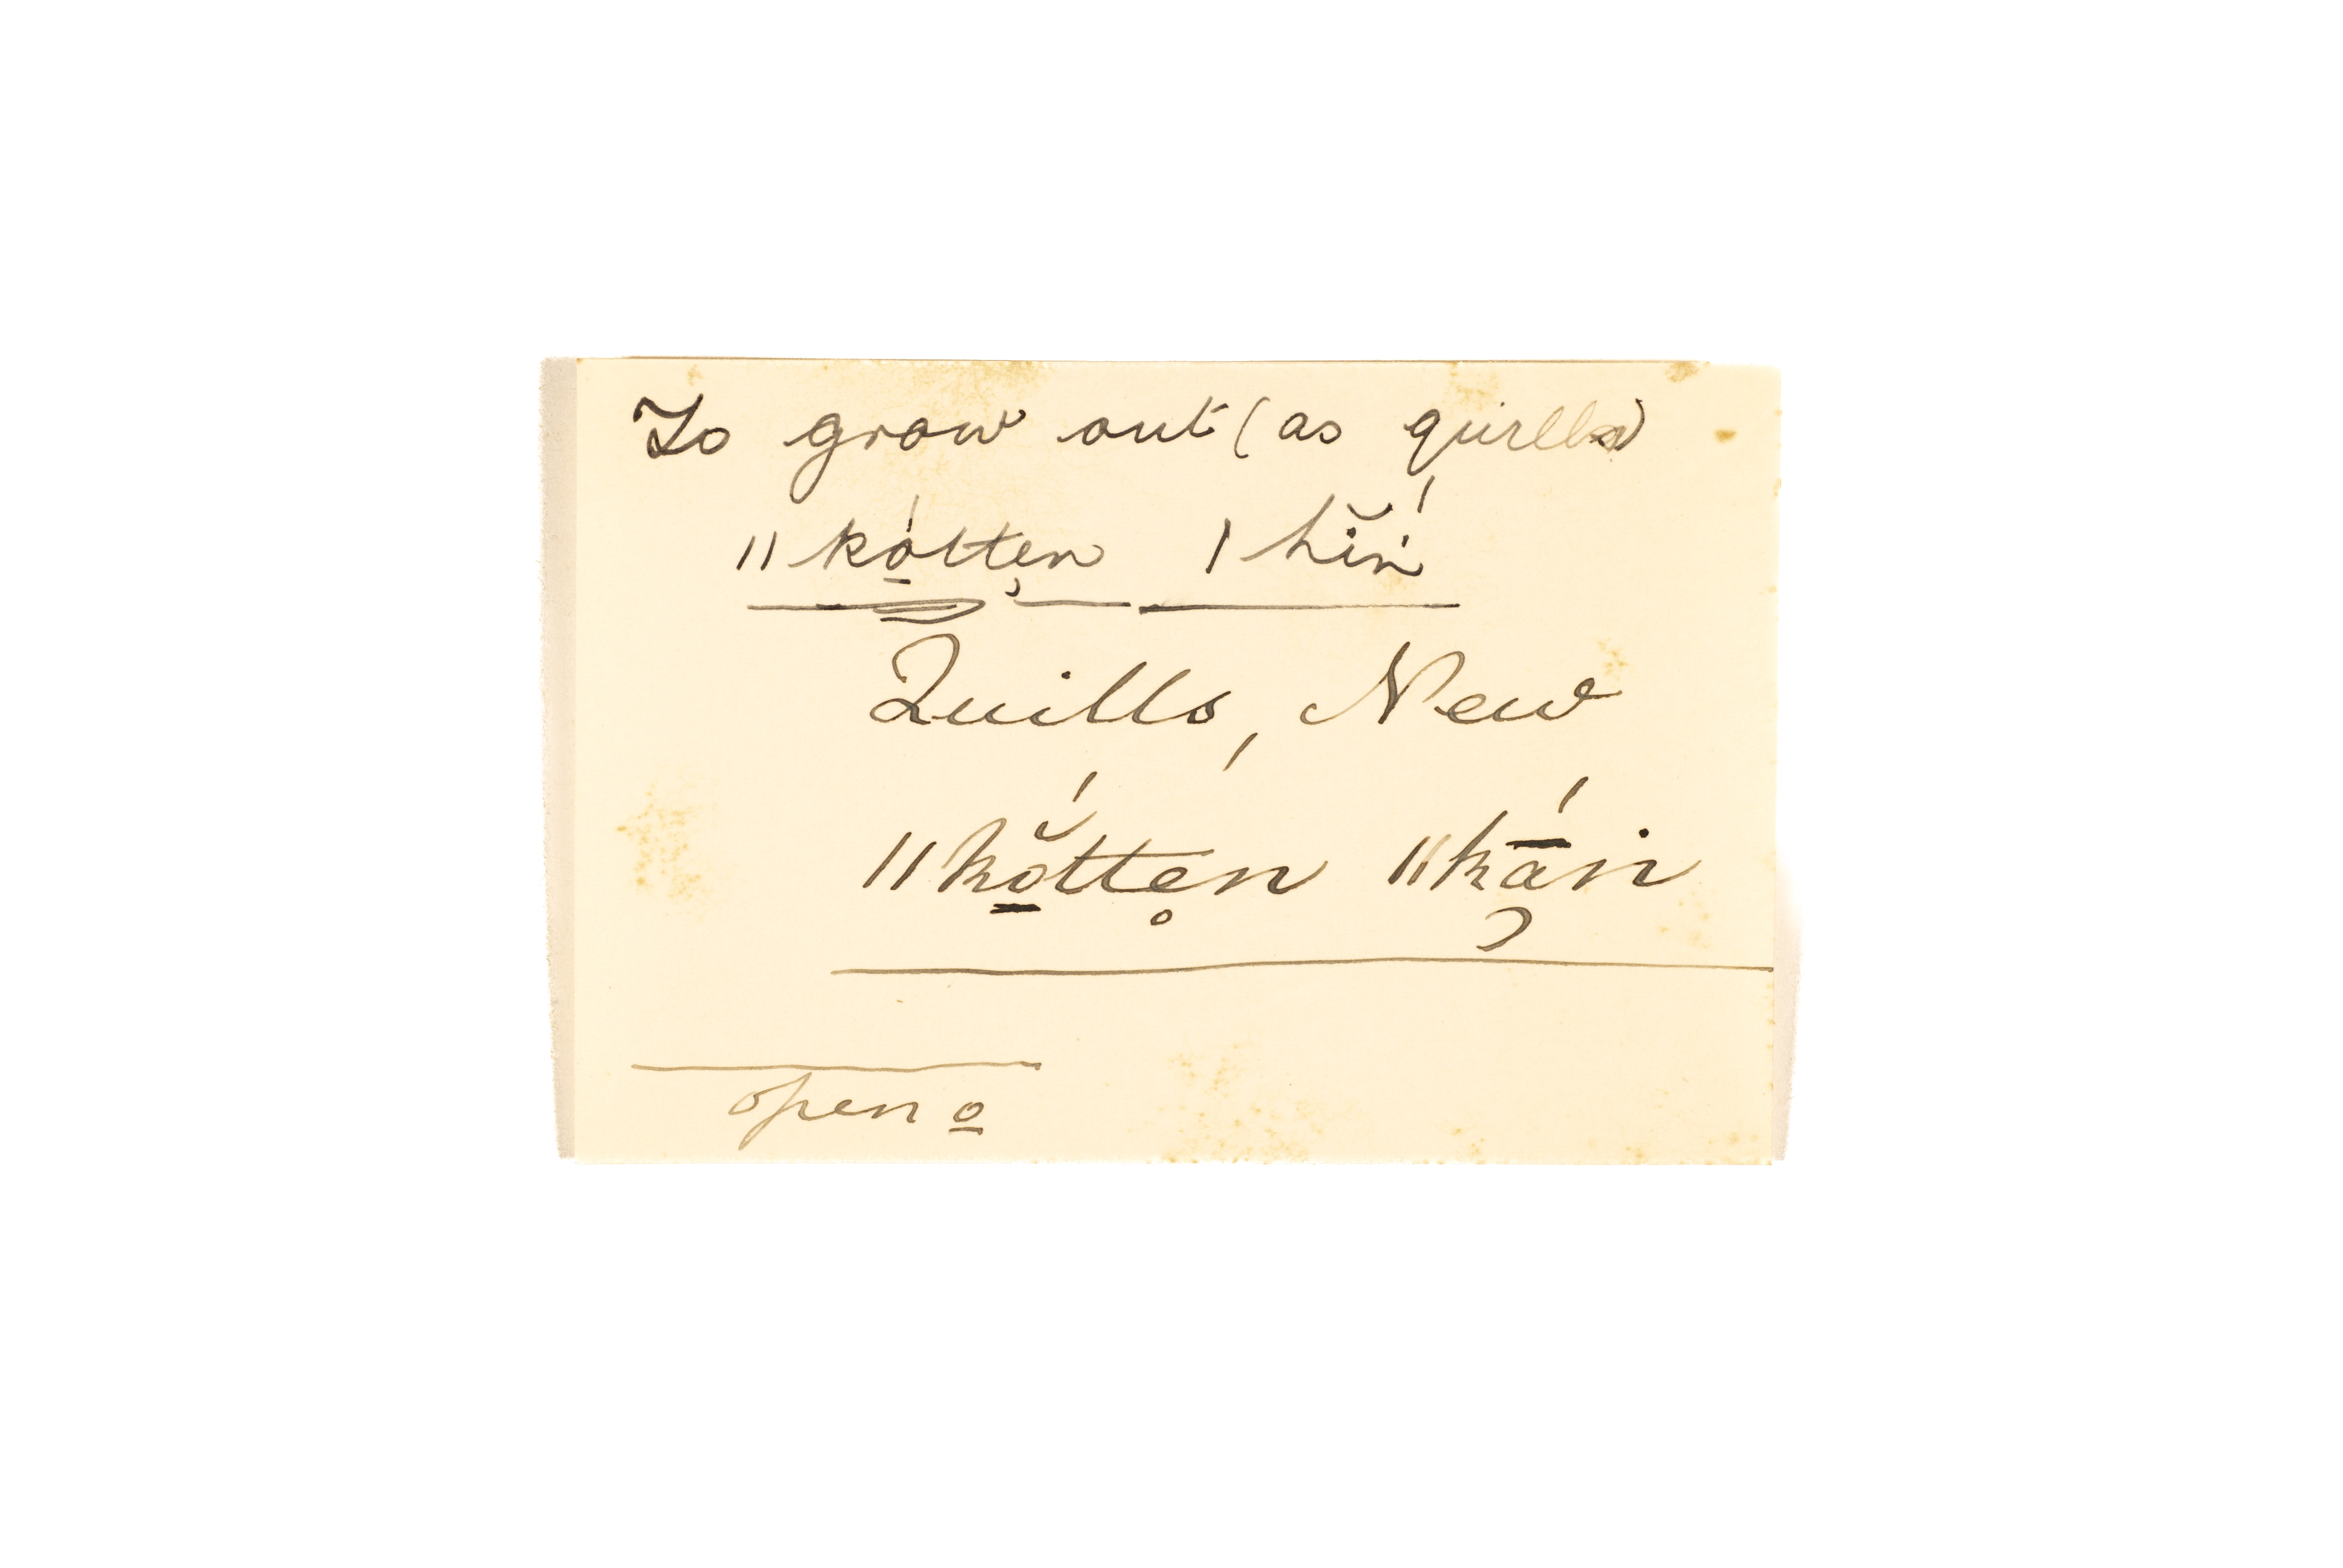 To grow out (as quills)
ǁkó̠ttę̃n ǀhĭṅ́
Quills, New
ǁkŏ̠́tte̥n ǁką̄́ṅ
open o̠